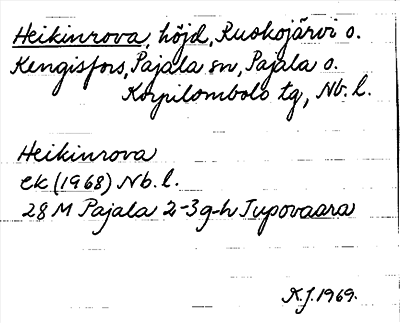 Heikinrova, höjd, Ruokojärvi o.
Kengisfors, Pajala sn, Pajala o.
Korpilombolo tg, Nb. l.
Heikinrova
ek (1968) Nb. l.
28 M Pajala 2-3 g-h Jupovaara
K.J. 1969.